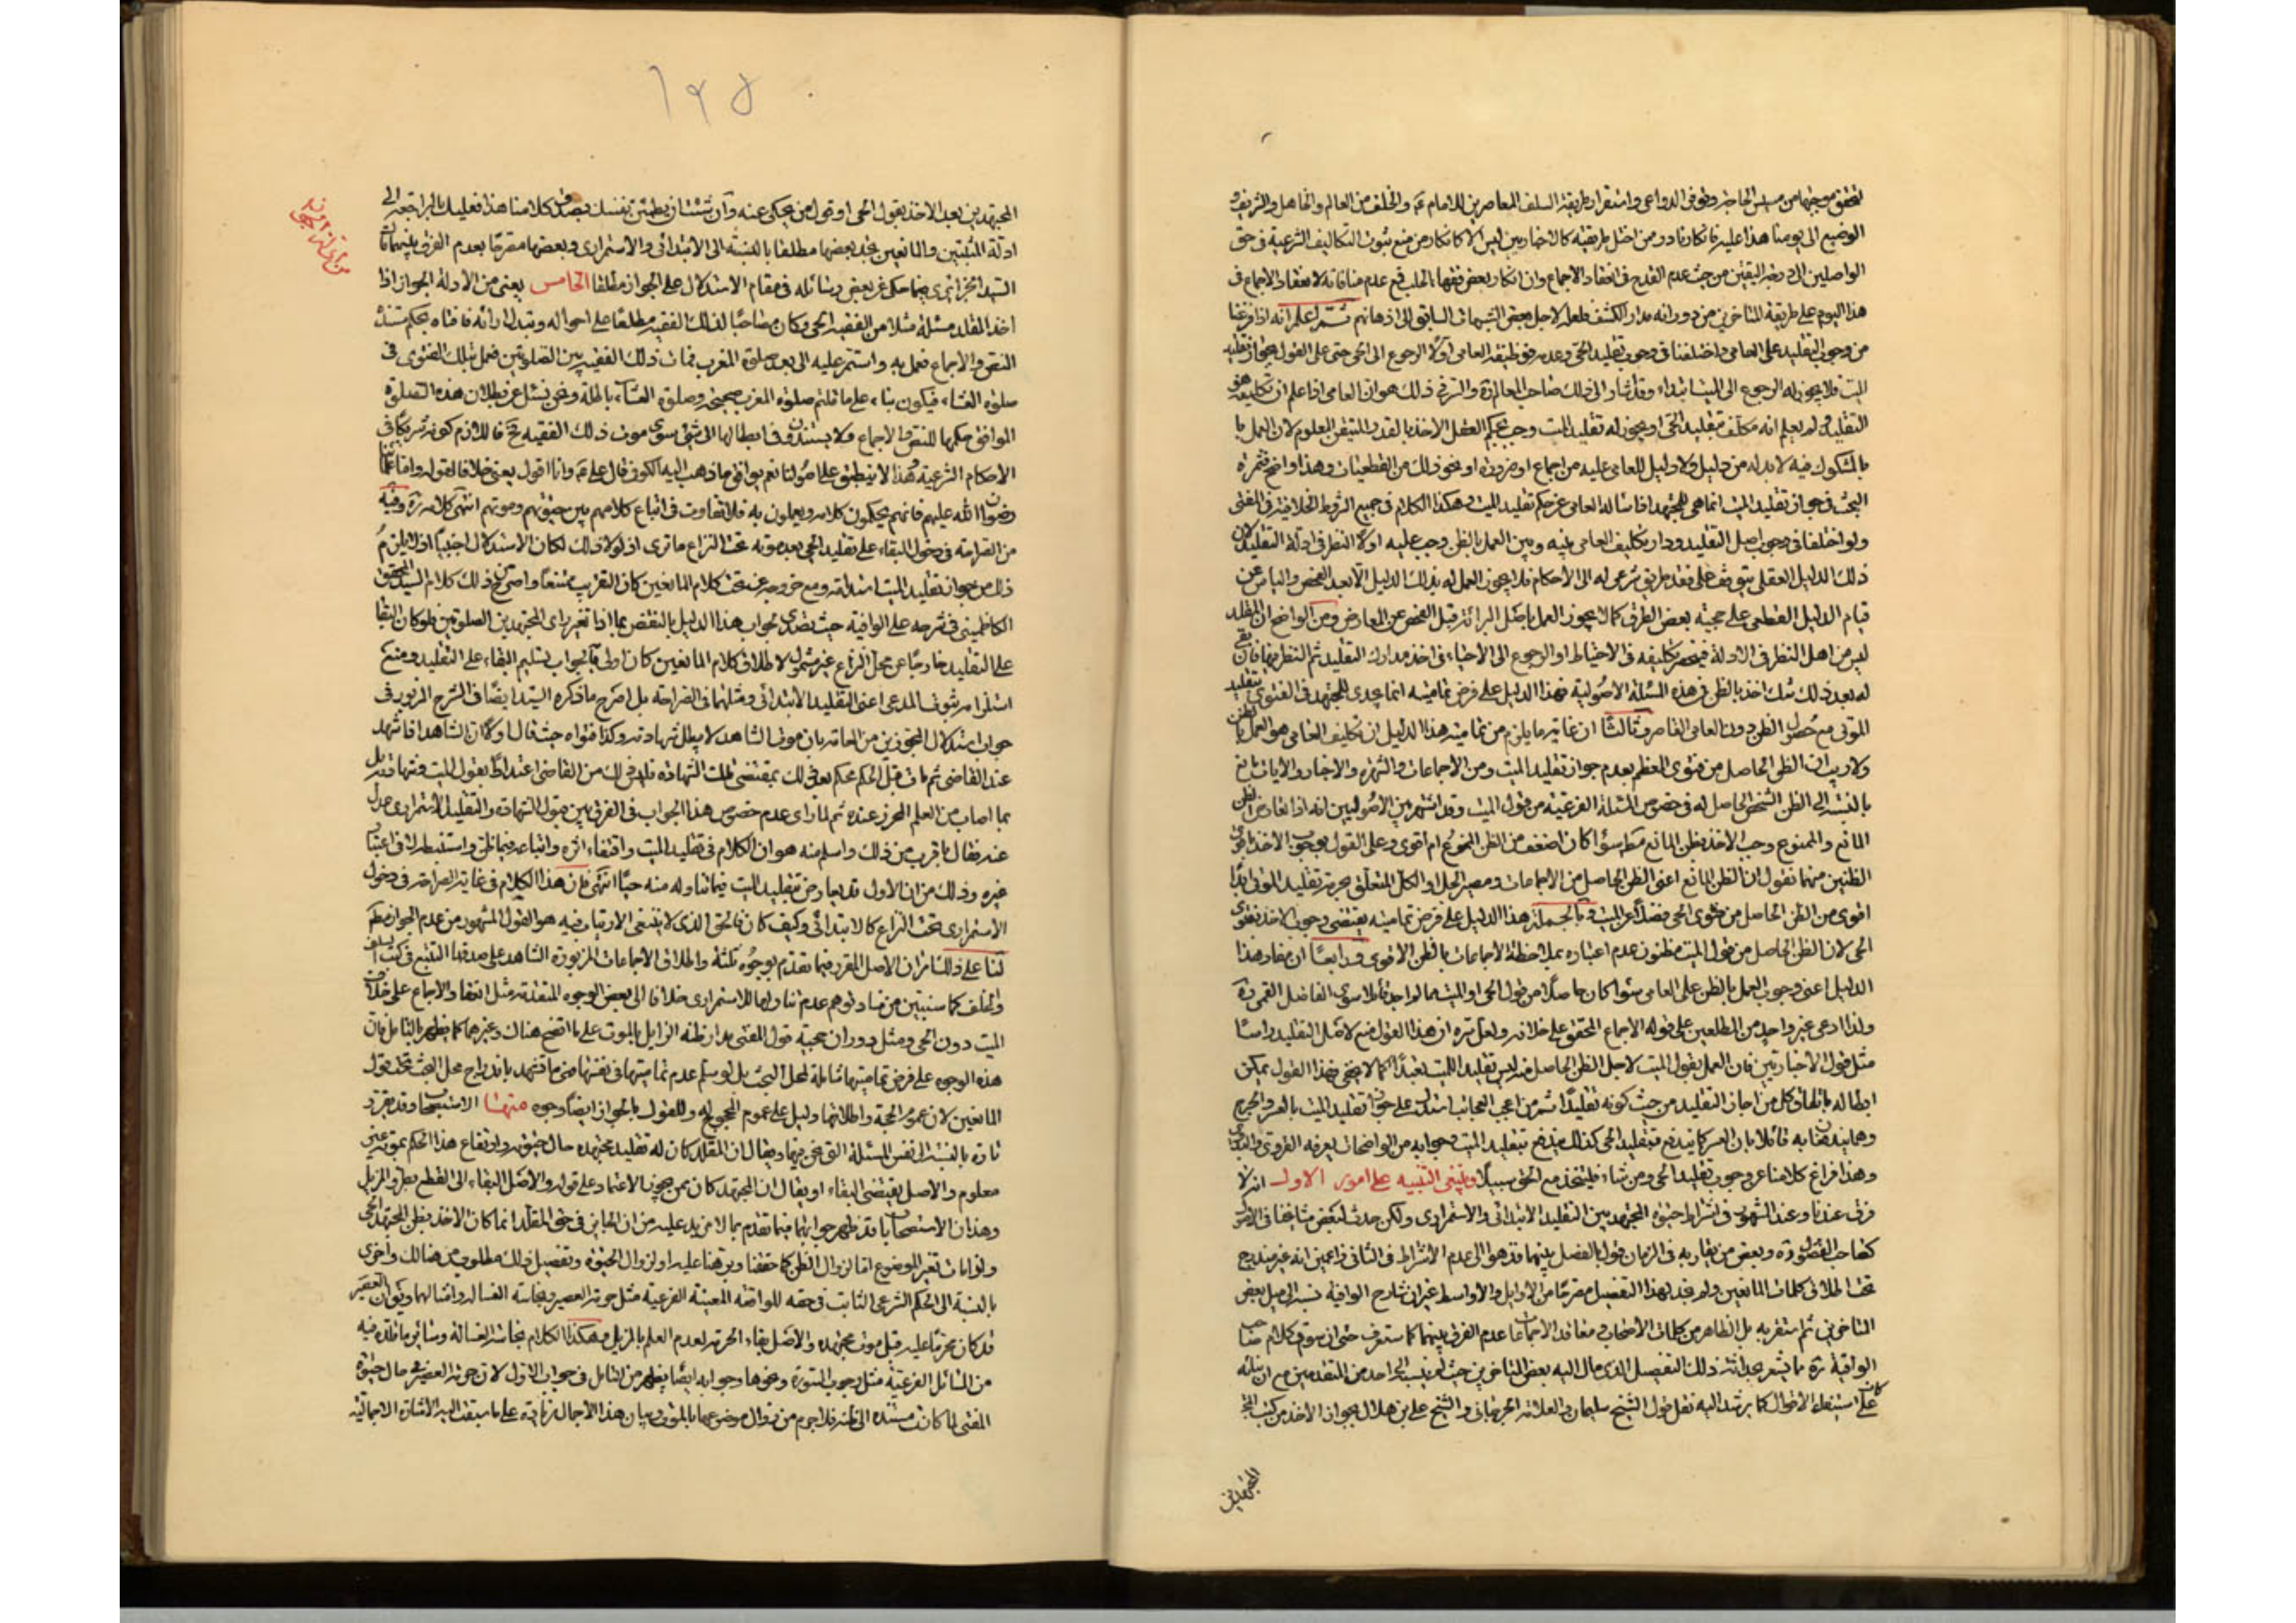 لتحقق موجبها من مسيس الحاجة وتوفر الدواعي واستقرار طريقة السلف المعاصرين للامام عم والخلف من العالم والجاهل والشريف و
الوضيع الى يومنا هذا عليه فانكار نادر ممن اختل طريقته كالاخباريين ليس الا كانكار من منع ثبوت التكاليف الشرعية في حق
الواصلين الى درجة اليقين من حيث عدم القدح في انعقاد الاجماع وان انكار بعض فقهاء الحلب فمع عدم منافاته لانعقاد الاجماع في
هذا اليوم على طريقة المتاخرين من دورانه مدار الكشف فلعله لاجل بعض الشبهات السابق الى اذهانهم ثم اعلم انه اذا فرغنا
من وجوب التقليد على العامي واختلفنا في وجوب تقليد الحي وعدمه فوظيفة العامي اولا الرجوع الى الحي حتى على القول بجواز تقليد
الميت فلا يجوز له الرجوع الى الميت ابتداء وقد اشار الى ذلك صاحب المعالم ره والسر في ذلك هو ان العامي اذا علم ان تكليفه هو
التقليد ولم يعلم انه مكلف بتقليد الحي او يجوز له تقليد الميت وجب بحكم العقل الاخذ بالقدر المتيقن المعلوم لان العمل با
بالمشكوك فيه لا بد له من دليل ولا دليل للعامي عليه من اجماع او ضرورة او نحو ذلك من القطعيات وهذا واضح فثمرة
البحث في جواز تقليد الميت انما هي للمجتهد اذا ساله العامي عن حكم تقليد الميت وهكذا الكلام في جميع الشروط الخلافية في المفتي
ولو اختلفنا في وجوب اصل التقليد ودار تكليف العامي بينه وبين العمل بالظن وجب عليه اولا النظر في ادلة التقليد لان
ذلك الدليل العقلي يتوقف على فقد طريق شرعي له الى الاحكام فلا يجوز العمل له بذلك الدليل الا بعد الفحص والياس عن
قيام الدليل القطعي على حجية بعض الطرق كما لا يجوز العمل باصل البرائة قبل الفحص عن المعارض ومن الواضح ان المقلد
ليس من اهل النظر في الادلة فينحصر تكليفه في الاحتياط او الرجوع الى الاحياء في اخذ مدارك التقليد ثم النظر فيها فان بقي
له بعد ذلك شك اخذ بالظن في هذه المسئلة الاصولية فهذا الدليل على فرض تماميته انما يجدي للمجتهد في الفتوى بتقليد
الموتى مع حصول الظن دون العامي القاصر وثالثا ان غاية ما يلزم من تمامية هذا الدليل ان تكليف العامي هو العمل بالظن
ولا ريب ان الظن الحاصل من فتوى المعظم بعدم جواز تقليد الميت ومن الاجماعات والشهرة والاخبار والايات مانع
بالنسبة الى الظن الشخصي الحاصل له في خصوص المسئلة الفرعية من قول الميت وقد اشتهر بين الاصوليين انه اذا تعارض الظن
المانع والممنوع وجب الاخذ بظن المانع مط سواء كان اضعف من الظن الممنوع ام اقوى وعلى القول بوجوب الاخذ باقوى
الظنين منهما نقول ان الظن المانع اعني الظن الحاصل من الاجماعات ومصير الجل او الكل المتعلق بحرمة تقليد الموتى ابدا
اقوى من الظن الحاصل من فتوى الحي فضلا عن الميت وبالجملة هذا الدليل على فرض تماميته يقتضي وجوب الاخذ بفتوى
الحي لان الظن الحاصل من قول الميت مظنون عدم اعتباره بملاحظة الاجماعات بالظن الاقوى ورابعا ان مفاد هذا
الدليل اعني وجوب العمل بالظن على العامي سواء كان حاصلا من قول الحي او الميت مما لم اجد قائلا سوى الفاضل القمي ره
ولذا ادعى غير واحد من المطلعين على قوله الاجماع المحقق على خلافه ولعل سره ان هذا القول منع لاصل التقليد راسا
مثل قول الاخباريين فان العمل بقول الميت لاجل الظن الحاصل منه ليس تقليدا للميت تعبدا كما لا يخفى فهذا القول يمكن
ابطاله باتفاق كل من اجاز التقليد من حيث كونه تقليدا ثم من اعجب العجائب استدلال على جواز تقليد الميت بالعسر والحرج
وهذا فراغ كلامنا عن وجوب تقليد الحي ومن شاء فليتخذ مع الحق سبيلا وينبغي التنبيه على امور الاول انه لا
فرق عندنا وعند المشهور في اشتراط حيوة المجتهد بين التقليد الابتدائي والاستمراري ولكن حدث لبعض مشايخنا في الاصول
كصاحب الفصول ره وبعض من يقاربه في الزمان قول بالفصل بينهما فذهبوا الى عدم الاشتراط في الثاني زاعمين انه غير مندرج
تحت اطلاق كلمات المانعين ولم نجد بهذا التفصيل مصرحا من الاوايل والاواسط غير ان شارح الوافية نسب الى ميل بعض
المتاخرين ثم استقربه بل الظاهر من كلمات الاصحاب ومعاقد الاجماعات عدم الفرق بينهما كما ستعرف حتى ان سوق كلام صاحب
الوافية ره ما يشعر بحداثة ذلك التفصيل الذي مال اليه بعض المتاخرين حيث لم ينسب الى احد من المتقدمين مع ان بنائه
كان على استيفاء الاقوال كما يرشد اليه نقل قول الشيخ سليمان والعلامة البحراني والشيخ علي بن هلال بجواز الاخذ من كتب المجتهدين
المجتهدين
١٢٥
المجتهدين بعد الاخذ بقول الحي او قول من يحكي عنه وان شئت ان يطمئن نفسك بصدق كلامنا هذا فعليك بالمراجعة الى
ادلة المثبتين والمانعين تجد بعضها مطلقا بالنسبة الى الابتدائي والاستمراري وبعضها مصرحا بعدم الفرق بينهما قال
السيد الجزائري فيما حكي عن بعض رسائله في مقام الاستدلال على الجواز مطلقا الخامس يعني من الادلة الجواز اذا
اخذ المقلد مسئلة مثلا من الفقيه الحي وكان مصاحبا لذلك الفقيه مطلعا على احواله وتبدل ارائه فافتاه بحكم مستند
النص والاجماع فعمل به واستمر عليه الى بعد صلوة المغرب فمات ذلك الفقيه بين الصلوتين فعمل بتلك الفتوى في
صلوة العشاء فيكون بناء على ما قلتم صلوة المغرب صحيحة وصلوة العشاء باطلة ونحن نسئل عن بطلان هذه الصلوة
الموافق حكمها للنص والاجماع ولا يستندون في ابطالها الى شئ سوى موت ذلك الفقيه فح فاللازم كونه شريكا في
الاحكام الشرعية وهذا لا ينطبق على اصولنا نعم يوافق ما ذهب اليه الكوفي قال علي عم وانا اقول يعني خلافا لقوله واما علمائنا
رضوان الله عليهم فانهم يحكمون كلامه ويعملون به فلا تفاوت في اتباع كلامهم بين حيوتهم وموتهم انتهى كلامه ره وفيه
من الصراحة في دخول البقاء على تقليد الحي بعد موته تحت النزاع ما ترى اذ لولا ذلك لكان الاستدلال اجنبيا اذ لا يلزم
ذلك من جواز تقليد الميت ابتداء ومع خروجه عن تحت كلام المانعين كان التقريب ممتنعا واصرح من ذلك كلام السيد المحقق
الكاظميني في شرحه على الوافية حيث تصدى لجواب هذا الدليل بالنقض بما اذا تغير راي المجتهد بين الصلوتين فلو كان البقا
على التقليد خارجا عن محل النزاع غير مشمول لاطلاق كلام المانعين كان اولى بالجواب تسليم البقاء على التقليد ومنع
استلزامه ثبوت المدعى اعني التقليد الابتدائي ومثلهما في الصراحة بل اصرح ما ذكره السيد ايضا في الشرح المزبور في
جواب استدلال المجوزين من العامة بان موت الشاهد لا يبطل شهادته وكذا فتواه حيث قال اولا ان الشاهد اذا شهد
عند القاضي ثم مات قبل الحكم فحكم بعد ذلك بمقتضى تلك الشهادة فليس ذلك من القاضي اعتدادا بقول الميت وشهادته بل
بما اصاب من العلم المحرز عنده ثم لما راى عدم خصوص هذا الجواب في الفرق بين قبول الشهادة والتقليد الاستمراري عدل
عنه فقال ما قرب من ذلك واسلم منه هو ان الكلام في تقليد الميت واقتفاء اثره واتباعه فيما ظن واستنبط لا في اعتبار
غيره وذلك من ان الاول قد يعارض بتقليد الميت فيما تناوله منه حيا انتهى فان هذا الكلام في غاية الصراحة في دخول
الاستمراري تحت النزاع كالابتدائي وكيف كان فالحق الذي لا ينبغي الارتياب فيه هو القول المشهور من عدم الجواز مطلقا
لنا على ذلك مضافا الى الاصل المقرر فيما تقدم بوجوه ثلثة واطلاق الاجماعات المزبورة الشاهد على صدقها التتبع في كتب السلف
والخلف كما سنبين من فساد توهم عدم تناولها للاستمراري خلافا الى بعض الوجوه المتقدمة مثل انعقاد الاجماع على خلاف
الميت دون الحي ومثل دوران حجية قول المفتي مدار ظنه الزايل بالموت على ما اتضح هناك وغيرهما كما يظهر بالتامل فان
هذه الوجوه على فرض تماميتها شاملة لمحل البحث بل لو سلم عدم تماميتها في نفسها ضمن ما تتعهد باندراج محل البحث تحت قول
المانعين لان عموم الحجة واطلاقها دليل على عموم المحجوج له وللقول بالجواز ايضا وجوه منها الاستصحاب وقد يقرر
تارة بالنسبة الى نفس المسئلة التي نحن فيها ويقال ان المقلد كان له تقليد مجتهده حال حيوته وارتفاع هذا الحكم بموته غير
معلوم والاصل يقتضي البقاء او يقال ان المجتهد كان ممن يجوز الاعتماد على قوله والاصل البقاء الى القطع بطرو المزيل
وهذان الاستصحابان قد ظهر جوابهما فيما تقدم بما لا مزيد عليه من ان الجايز في حق المقلد انما كان الاخذ بظن المجتهد الحي
ولو مات تغير الموضوع اما لزوال الظن كما حققنا وبرهنا عليه او لزوال الحيوة وتفصيل ذلك مطلوب من هنالك واخرى
بالنسبة الى الحكم الشرعي الثابت في حقه للواقعة المعينة الفرعية مثل حرمة العصير ونجاسة الغسالة وامثالهما ويقال ان العصير
قد كان محرما عليه قبل موت مجتهده والاصل بقاء الحرمة لعدم العلم بالمزيل وهكذا الكلام في نجاسة الغسالة وسائر ما قلده فيه
من المسائل الفرعية مثل وجوب السورة ونحوها وجوابه ايضا يظهر من التامل في جواب الاول لان حرمة العصير في حال حيوة
المفتي لما كانت مستندة الى ظنه فلا جرم من زوال موضوعها بالموت وبيان هذا الاجمال زيادة على ما سبقت اليه الاشارة الاجمالية